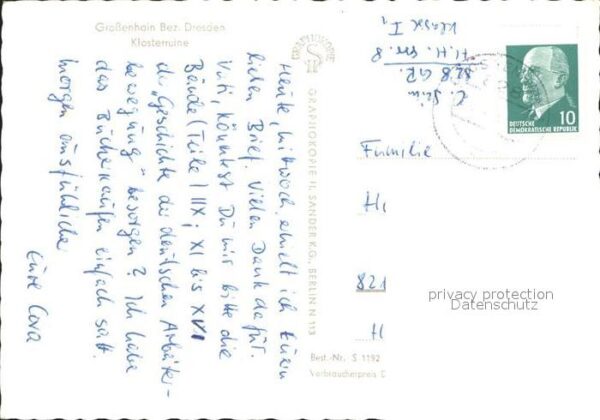 Großenhain Bez. Dresden
Klosterruine
Heute, Mittwoch, erhielt ich Euren
lieben Brief. Vielen Dank dafür.
Vati, könntest Du mir bitte die
Bände (Teile) IX; XI bis XVI
der "Geschichte der deutschen Arbeiter-
bewegung" besorgen? Ich habe
das Bücherkaufen einfach satt.
morgen ausführlicher
Eure Cora
GRAPHOKOPIE
GRAPHOKOPIE H. SANDER K.G., BERLIN N 113
Best.-Nr. S 1192
Verbraucherpreis
828 GR.
H. H. Str. 8
Klasse I
10
DEUTSCHE
DEMOKRATISCHE REPUBLIK
Familie
H
821
H
privacy protection
Datenschutz